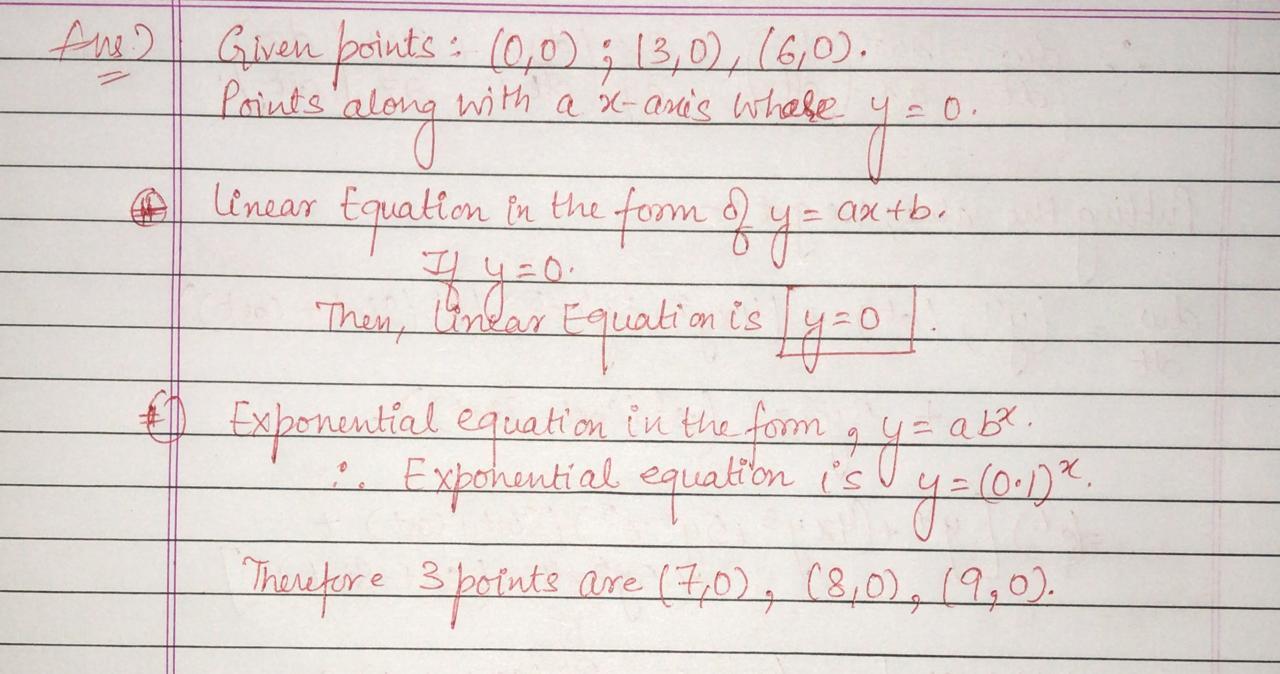 Ans.) Given points : (0,0) ; (3,0), (6,0).
Points along with a x-axis whose y = 0.
Linear Equation in the form of y = ax+b.
If y = 0.
Then, Linear Equation is y=0 .
Exponential equation in the form , y = abˣ.
∴ Exponential equation is y = (0.1)ˣ.
Therefore 3 points are (7,0), (8,0), (9,0).